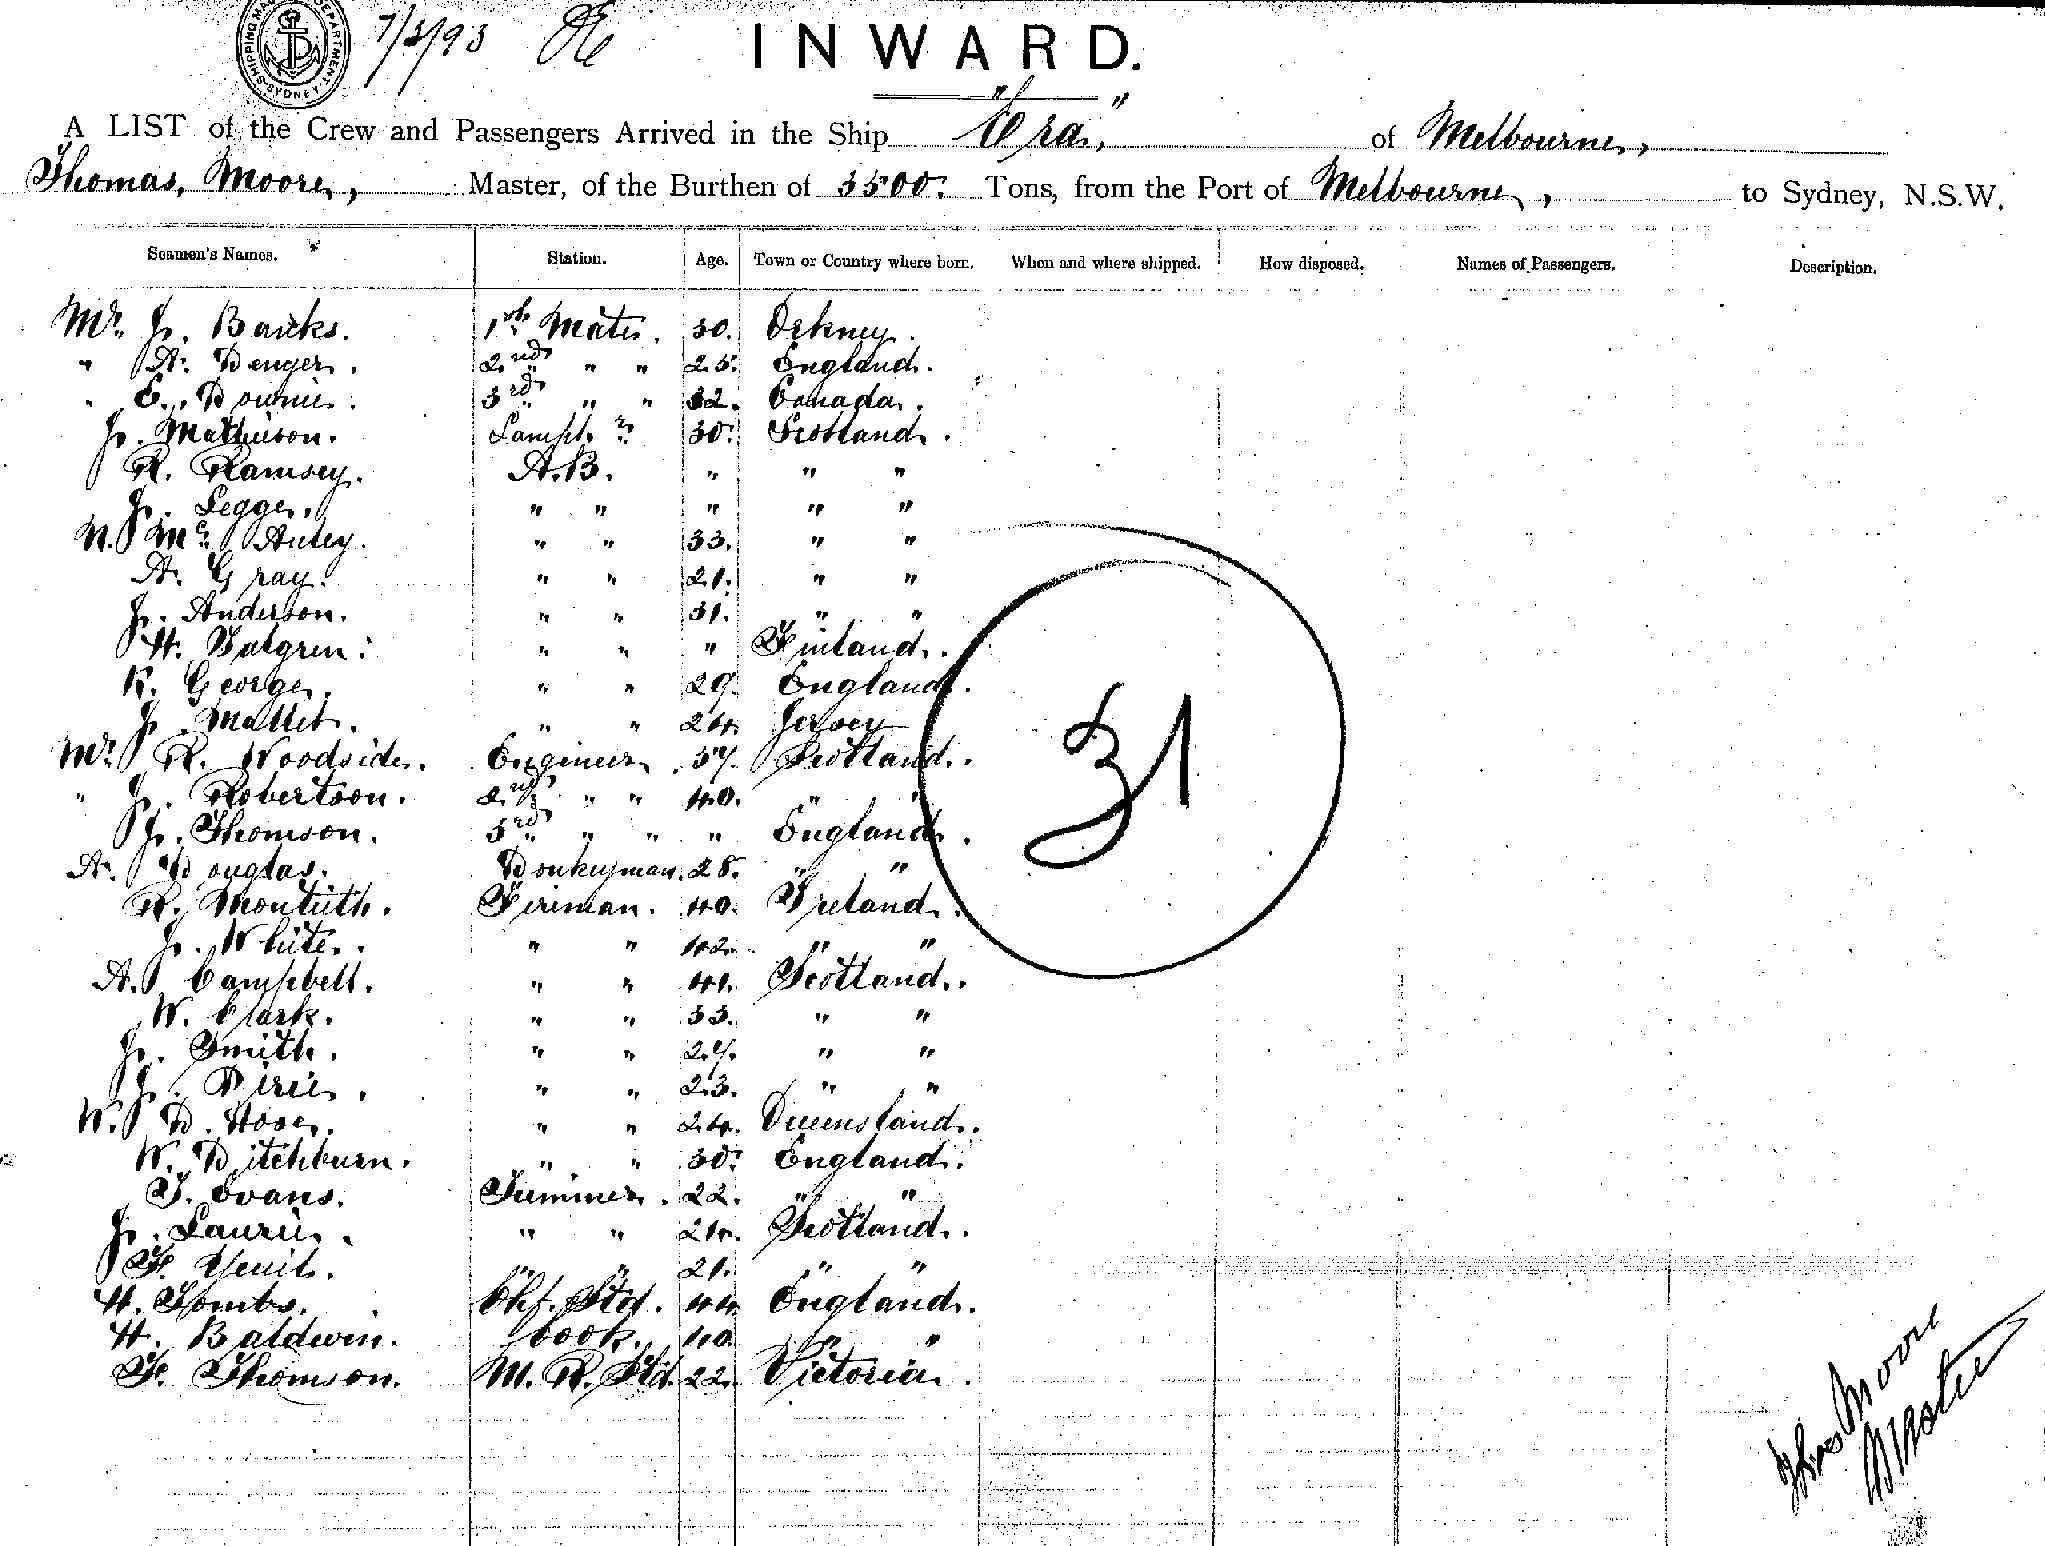 SHIPPING MASTER'S DEPARTMENT SYDNEY
7/3/93
INWARD.
A LIST of the Crew and Passengers Arrived in the Ship "Era", of Melbourne,
Thomas, Moore, Master, of the Burthen of 3500. Tons, from the Port of Melbourne, to Sydney, N.S.W.
Seamen's Names. Station. Age. Town or Country where born. When and where shipped. How disposed. Names of Passengers. Description.
Mr. J. Banks. 1st Mate. 30. Orkney.
" A. Denger. 2nd " " 25. England.
" E. Downie. 3rd " " 32. Canada.
J. Mathieson. Lampt.r 30. Scotland.
R. Ramsey. A.B. " " "
J. Legge. " " " " "
N. Mc. Auley. " " 33. " "
A. Gray. " " 21. " "
J. Anderson. " " 31. " "
H. Falgren. " " " Finland.
R. George. " " 29. England.
J. Mallet. " " 24. Jersey
Mr. R. Woodside. Engineer. 37. Scotland.
" J. Robertson. 2nd " " 40. " "
J. Thomson. 3rd " " " England.
A. Douglas. Donkeyman. 28. " "
R. Monteith. Fireman. 40. Ireland.
J. White. " " 42. " "
A. Campbell. " " 41. Scotland.
W. Clark. " " 33. " "
J. Smith. " " 27. " "
J. Pirie. " " 23. " "
W. D. Hose. " " 24. Queensland.
W. Ditchburn. " " 30. England.
T. Evans. Trimmer. 22. " "
J. Laurie. " " 24. Scotland.
F. " " 21. " "
H. Tombs. Chf. Std. 44. England.
H. Baldwin. Cook. 40. " "
F. Thomson. M. R. Std. 22. Victoria.
31
Thos Moore
Master